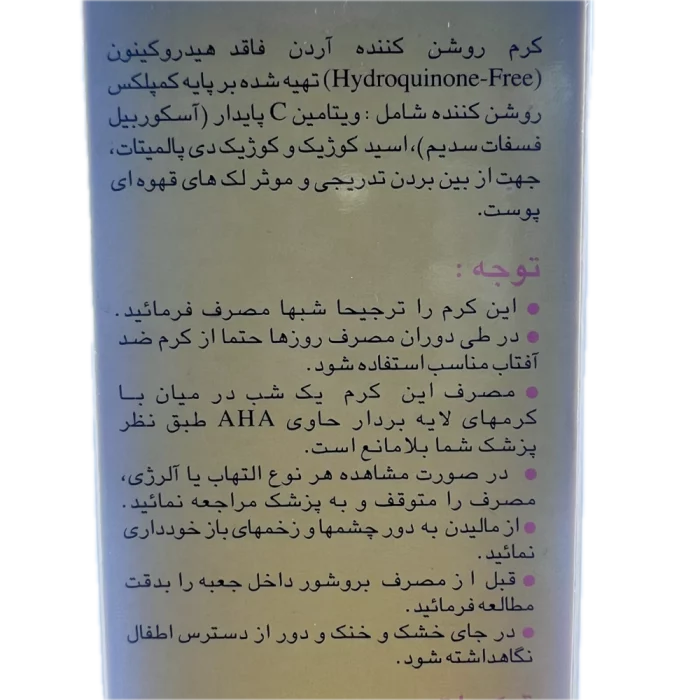 کرم روشن کننده آردن فاقد هیدروکینون
(Hydroquinone-Free) تهیه شده بر پایه کمپلکس
روشن کننده شامل : ویتامین C پایدار (آسکوربیل
فسفات سدیم)، اسید کوژیک و کوژیک دی پالمیتات،
جهت از بین بردن تدریجی و موثر لک های قهوه ای
پوست.
توجه :
● این کرم را ترجیحا شبها مصرف فرمائید.
● در طی دوران مصرف روزها حتما از کرم ضد
آفتاب مناسب استفاده شود.
● مصرف این کرم یک شب در میان با
کرمهای لایه بردار حاوی AHA طبق نظر
پزشک شما بلامانع است.
● در صورت مشاهده هر نوع التهاب یا آلرژی،
مصرف را متوقف و به پزشک مراجعه نمائید.
● از مالیدن به دور چشمها و زخمهای باز خودداری
نمائید.
● قبل از مصرف بروشور داخل جعبه را بدقت
مطالعه فرمائید.
● در جای خشک و خنک و دور از دسترس اطفال
نگاهداشته شود.